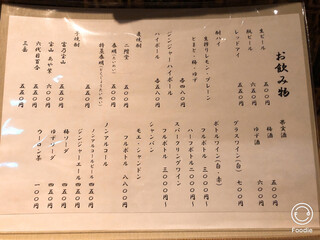 お飲み物
生ビール 五五〇円
瓶ビール 六五〇円
レッドアイ 五五〇円
酎ハイ
生搾りレモン・プレーン
とまと・梅・ゆず 四八〇円
ジンジャーハイボール
ハイボール 各五八〇円
麦焼酎
二階堂 五五〇円
吾唄 五五〇円
特蒸泰明 五五〇円
芋焼酎
富乃宝山 五五〇円
宝山 あや紫 六〇〇円
六代目百合 五五〇円
三岳 五五〇円
果実酒
梅酒 五〇〇円
ゆず酒 六〇〇円
グラスワイン(白) 七〇〇円
ボトルワイン(白・赤)
フルボトル 三〇〇〇円〜
ハーフボトル二〇〇〇円〜
スパークリングワイン
フルボトル 三〇〇〇円〜
シャンパン
モエ・シャンドン
フルボトル 八八〇〇円
ノンアルコール
ノンアルコールビール 四五〇円
ジンジャーエール 四五〇円
ゆずソーダ 四五〇円
梅ソーダ 四五〇円
ウーロン茶 一〇〇円
Foodie